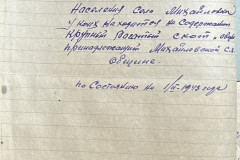 Населения Село Михайловки
у коих находится на содержании
Крупный рогатый скот, овцы
принадлежащий Михайловской с.х.
общине.
по состоянию на 1/III-1943 года